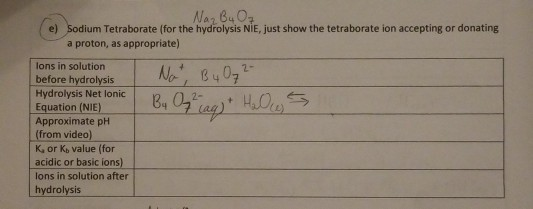 Na₂B₄O₇
e) Sodium Tetraborate (for the hydrolysis NIE, just show the tetraborate ion accepting or donating
a proton, as appropriate)
Ions in solution
before hydrolysis
Na⁺, B₄O₇²⁻
Hydrolysis Net Ionic
Equation (NIE)
B₄O₇²⁻(aq) + H₂O(l) ⇆
Approximate pH
(from video)
Kₐ or K_b value (for
acidic or basic ions)
Ions in solution after
hydrolysis